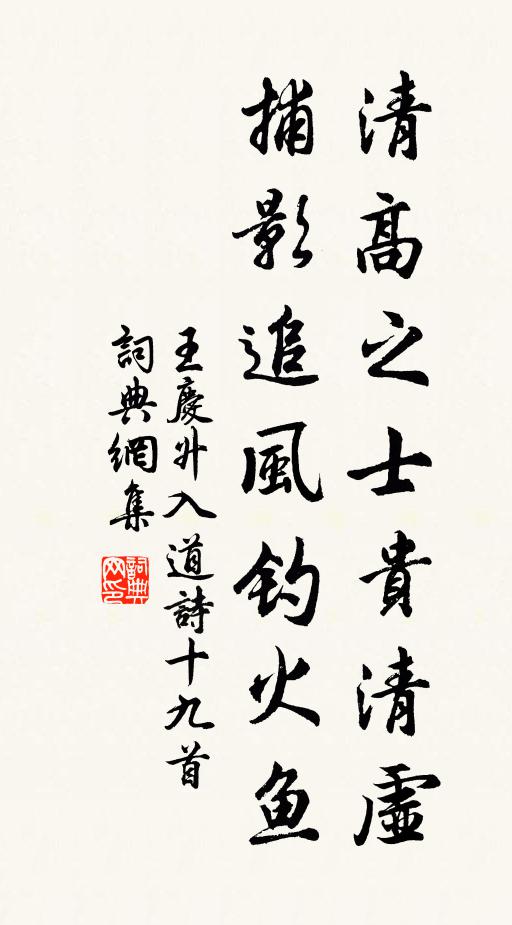 清高之士貴清虛
捕影追風钓火鱼
王慶升入道詩十九首
詞典網集
詞典网印